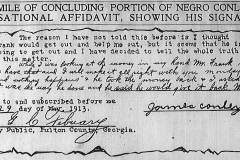 MILE OF CONCLUDING PORTION OF NEGRO CONL
SATIONAL AFFIDAVIT, SHOWING HIS SIGNA
The reason I have not told this before is I thought
rank would get out and help me out, but it seems that he is
oing to get out and I have decided to tell the whole truth
this matter.
While I was looking at the money in my hand Mr. Frank
have that and I will make it all right with you
he took the money back
and subscribed before me
9 day of May, 1913.
James Conley
G. C. Febuary
y Public, Fulton County, Georgia.